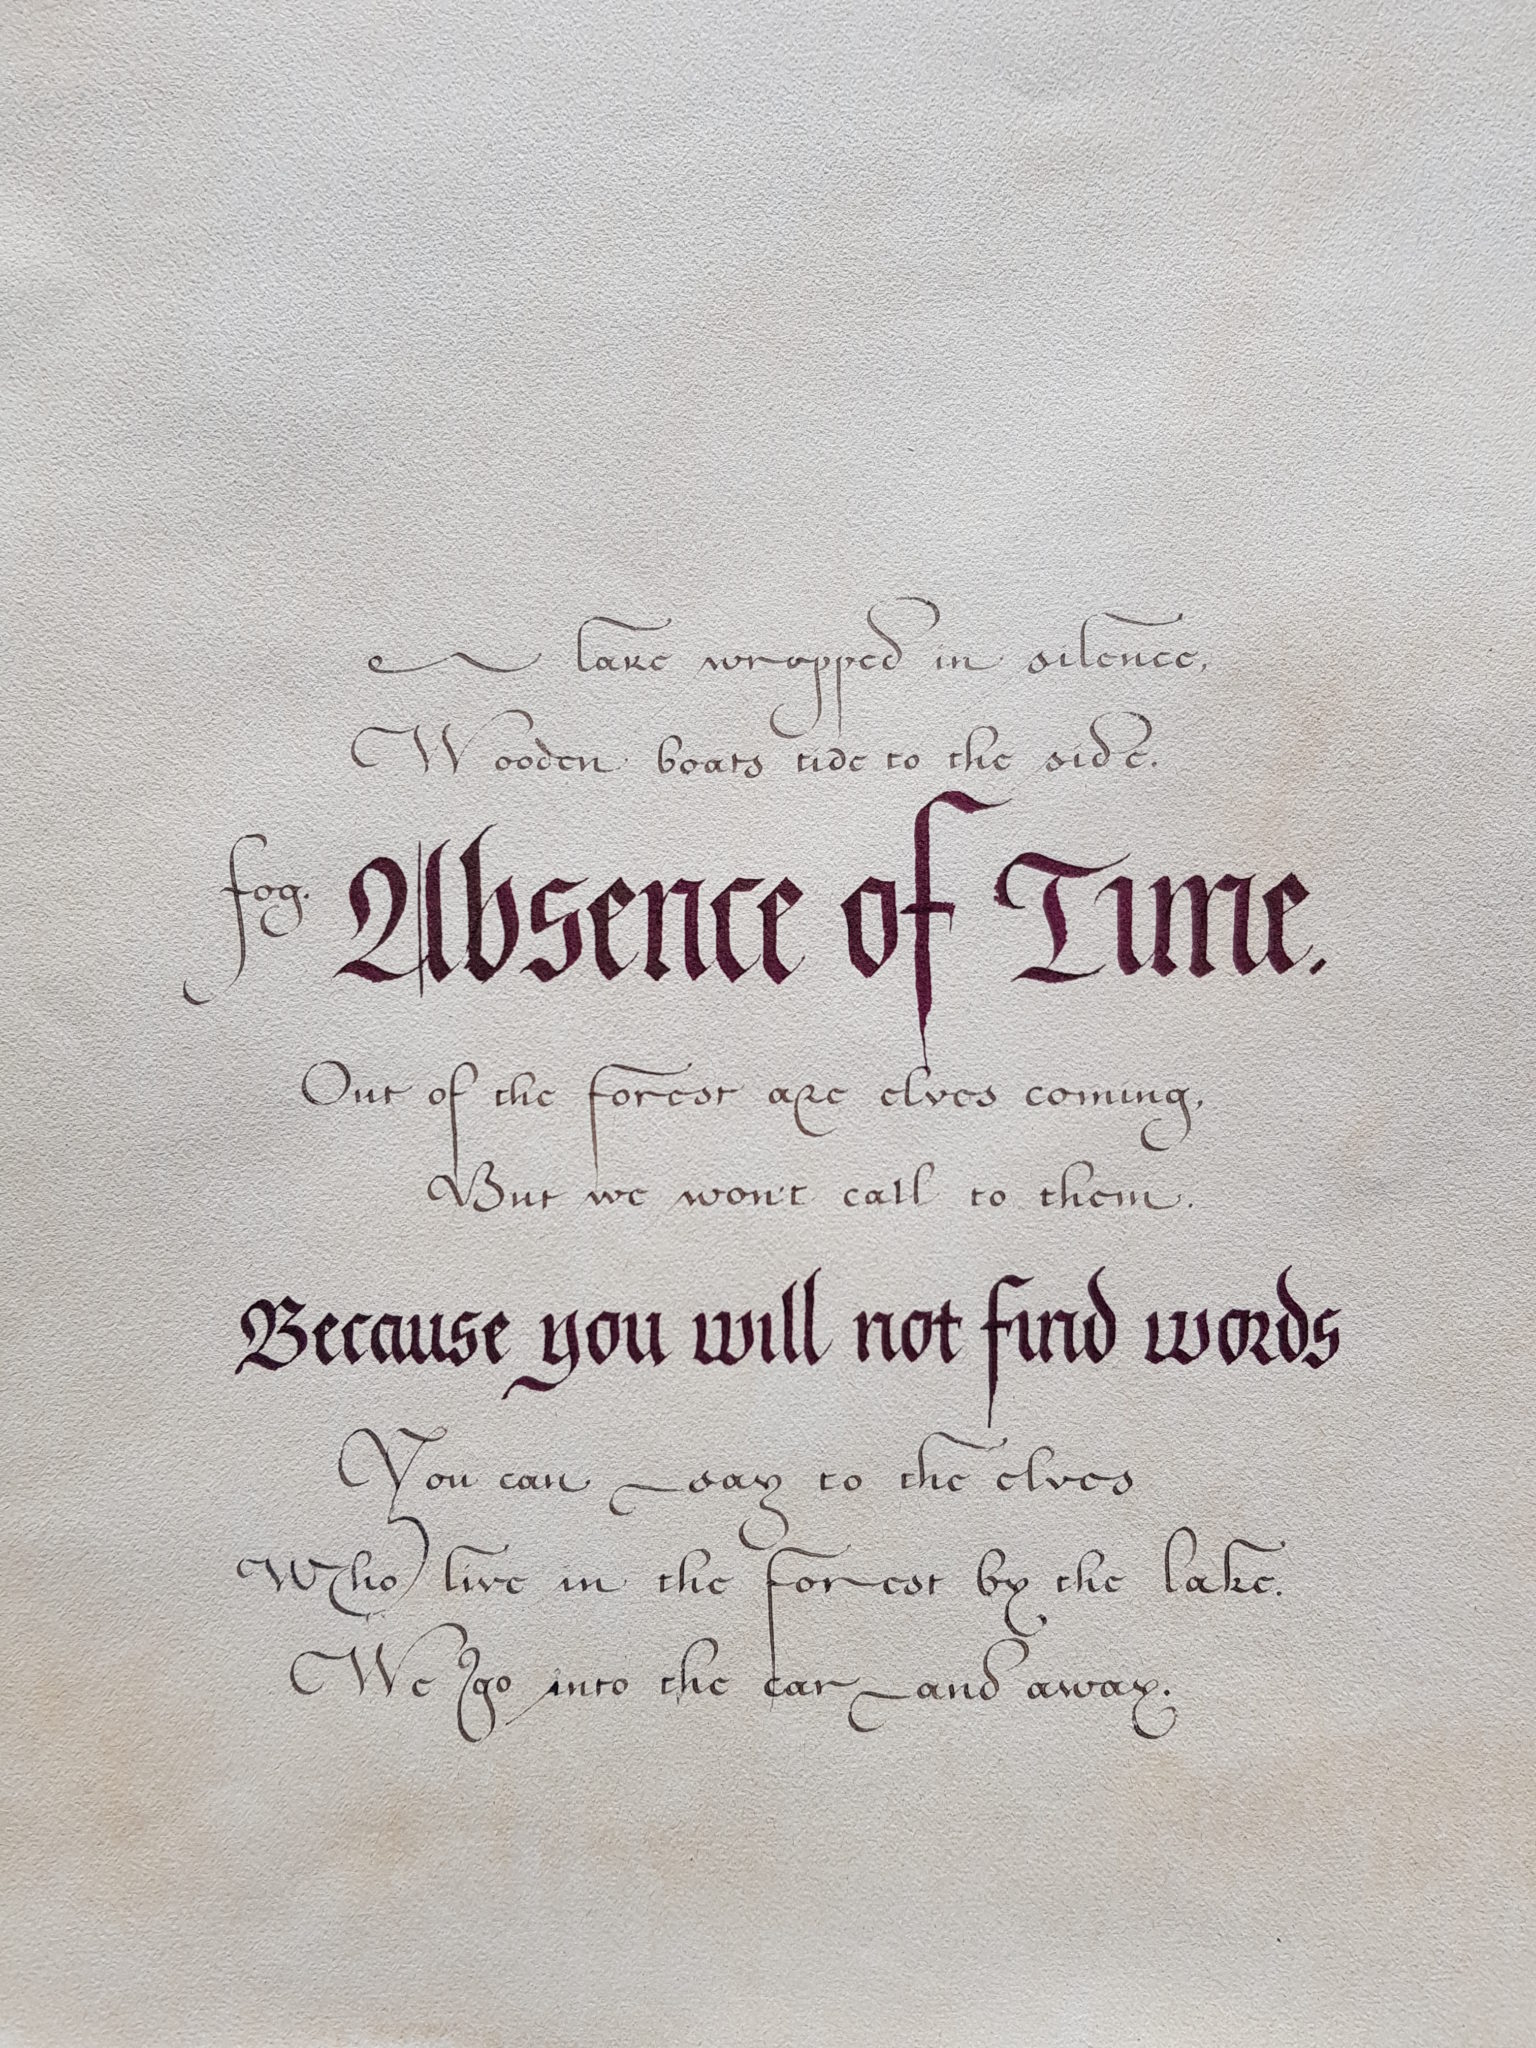 A lake wrapped in silence,
Wooden boats tide to the side.
fog. Absence of Time.
Out of the forest are elves coming,
But we won't call to them.
Because you will not find words
You can say to the elves
Who live in the forest by the lake.
We go into the car and away.